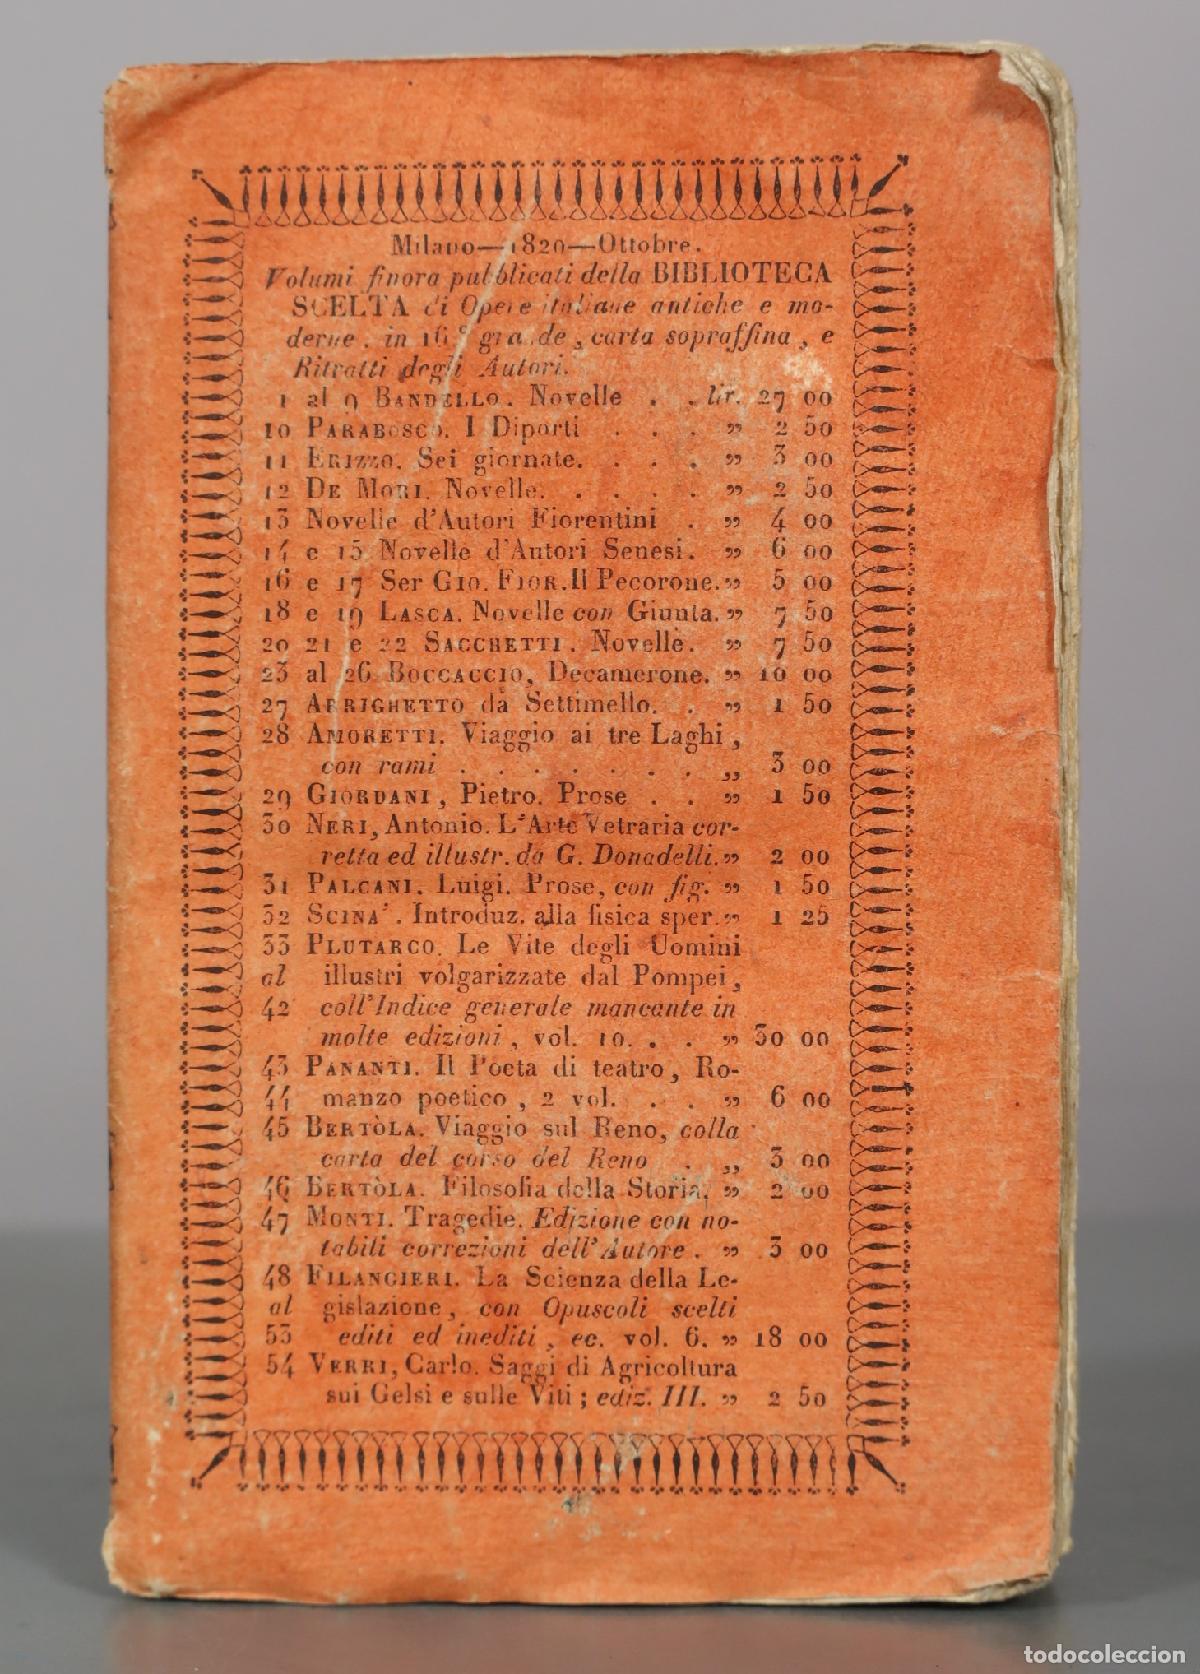 Milano—1820—Ottobre.
Volumi finora pubblicati della BIBLIOTECA
SCELTA di Opere italiane antiche e mo-
derne, in 16.° grande, carta sopraffina, e
Ritratti degli Autori.
1 al 9 BANDELLO. Novelle . . lir. 27 00
10 PARABOSCO. I Diporti . . . „ 2 50
11 ERIZZO. Sei giornate. . . . „ 3 00
12 DE MORI. Novelle. . . . . „ 2 50
13 Novelle d'Autori Fiorentini . „ 4 00
14 e 15 Novelle d'Autori Senesi. „ 6 00
16 e 17 SER GIO. FIOR. Il Pecorone. „ 5 00
18 e 19 LASCA. Novelle con Giunta. „ 7 50
20 21 e 22 SACCHETTI. Novelle. „ 7 50
23 al 26 BOCCACCIO, Decamerone. „ 10 00
27 ARRIGHETTO da Settimello. . „ 1 50
28 AMORETTI. Viaggio ai tre Laghi,
con rami . . . . . . . „ 3 00
29 GIORDANI, Pietro. Prose . . „ 1 50
30 NERI, Antonio. L'Arte Vetraria cor-
retta ed illustr. da G. Donadelli. „ 2 00
31 PALCANI. Luigi. Prose, con fig. „ 1 50
32 SCINA'. Introduz. alla fisica sper. „ 1 25
33 PLUTARCO. Le Vite degli Uomini
al illustri volgarizzate dal Pompei,
42 coll'Indice generale mancante in
molte edizioni, vol. 10. . . „ 30 00
43 PANANTI. Il Poeta di teatro, Ro-
44 manzo poetico, 2 vol. . . „ 6 00
45 BERTÒLA. Viaggio sul Reno, colla
carta del corso del Reno . „ 3 00
46 BERTÒLA. Filosofia della Storia. „ 2 00
47 MONTI. Tragedie. Edizione con no-
tabili correzioni dell'Autore. „ 3 00
48 FILANGIERI. La Scienza della Le-
al gislazione, con Opuscoli scelti
53 editi ed inediti, ec. vol. 6. „ 18 00
54 VERRI, Carlo. Saggi di Agricoltura
sui Gelsi e sulle Viti; ediz. III. „ 2 50
todocoleccion